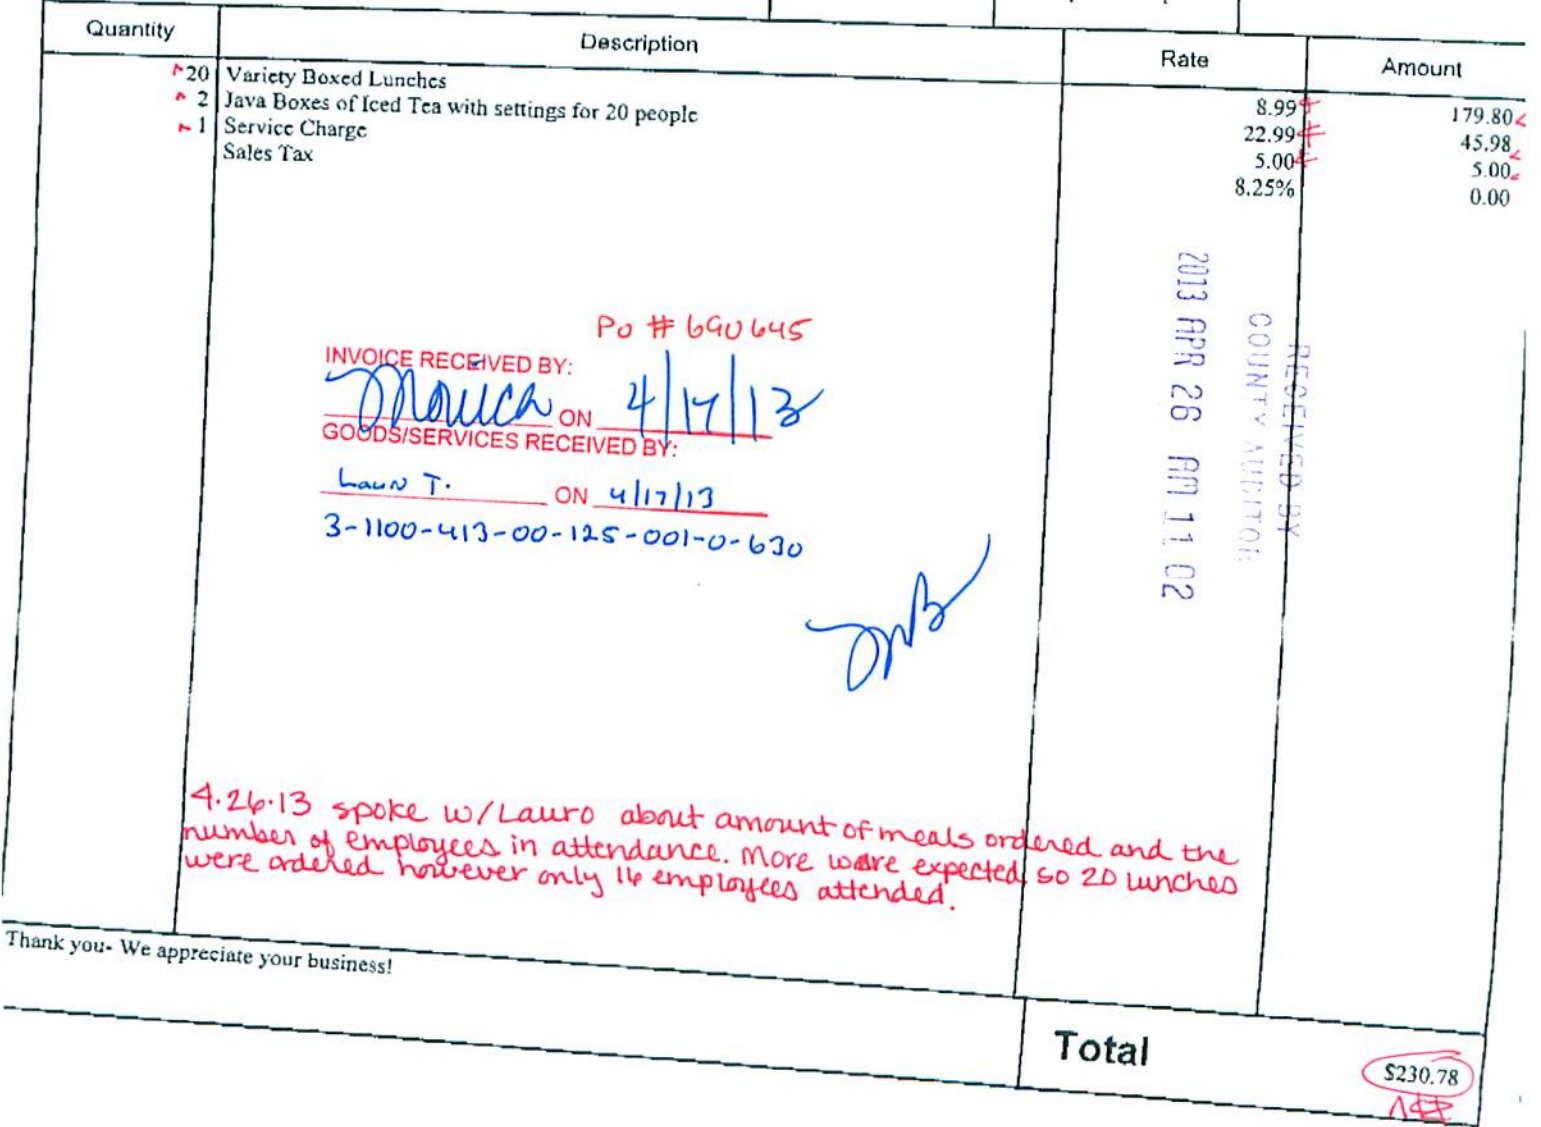 Quantity Description Rate Amount
20 Variety Boxed Lunches 8.99 179.80
2 Java Boxes of Iced Tea with settings for 20 people 22.99 45.98
1 Service Charge 5.00 5.00
Sales Tax 8.25% 0.00
Po # 690645
INVOICE RECEIVED BY:
Monica ON 4/17/13
GOODS/SERVICES RECEIVED BY:
Lauro T. ON 4/17/13
3-1100-413-00-125-001-0-630
RECEIVED BY
COUNTY AUDITOR
2013 APR 26 AM 11 02
4.26.13 spoke w/Lauro about amount of meals ordered and the
number of employees in attendance. More were expected, so 20 lunches
were ordered however only 16 employees attended.
Thank you- We appreciate your business!
Total $230.78